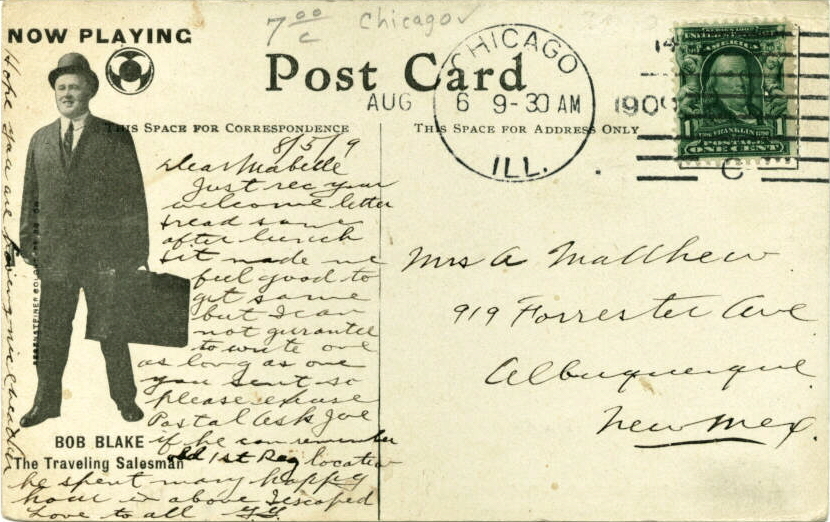 7 00/c Chicago
NOW PLAYING
Post Card
CHICAGO
AUG 6 9-30 AM 1909
ILL.
C
UNITED STATES OF AMERICA
FRANKLIN
1 1
POSTAGE
ONE CENT
THIS SPACE FOR CORRESPONDENCE
THIS SPACE FOR ADDRESS ONLY
8/5/9
Dear Mabelle
Just rec your
welcome letter
& read same
after lunch
& it made me
feel good to
get same
but I can
not gurantee
to write one
as long as one
you sent so
please excuse
Postal Ask Joe
if he can remember
old 1st Reg location
he spent many happy
hour in above I escaped
Love to all
Hope you are
BOB BLAKE
The Traveling Salesman
Mrs A Matthew
919 Forrester Ave
Albuquerque
New Mex.